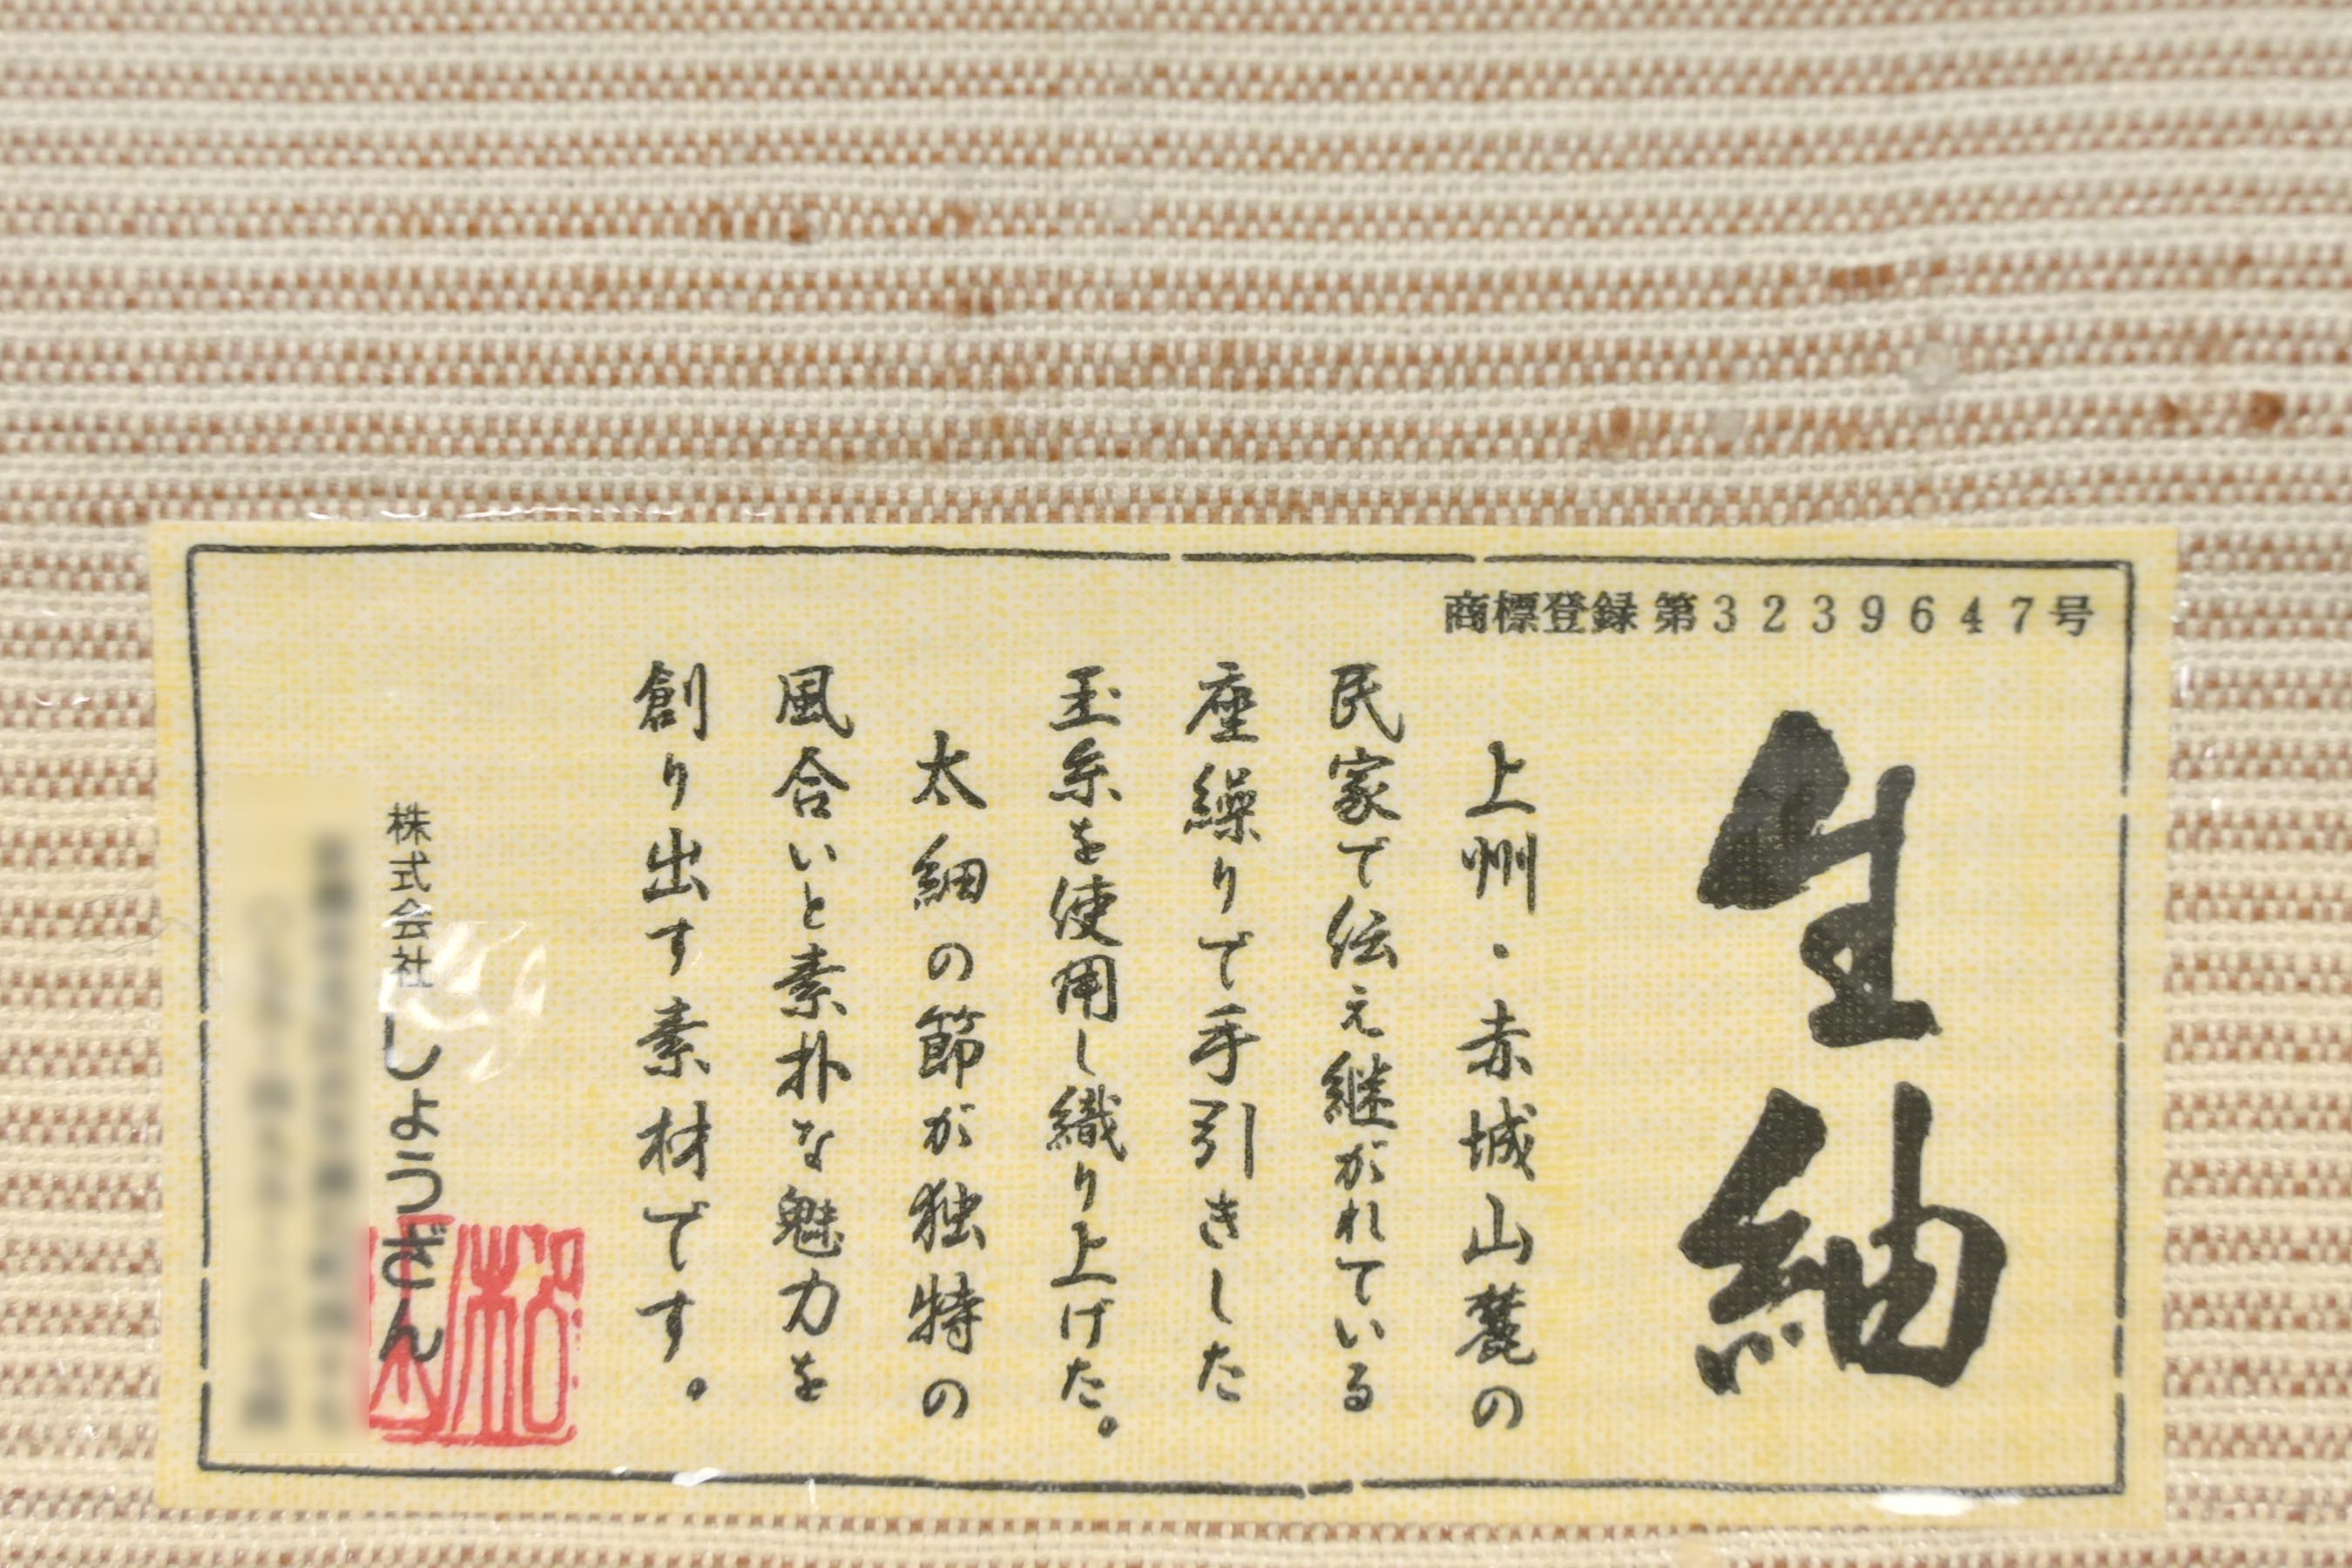 商標登録 第3239647号
生紬
上州・赤城山麓の
民家で伝え継がれている
座繰りで手引きした
玉糸を使用し織り上げた。
太細の節が独特の
風合いと素朴な魅力を
創り出す素材です。
株式会社しょうざん
松山